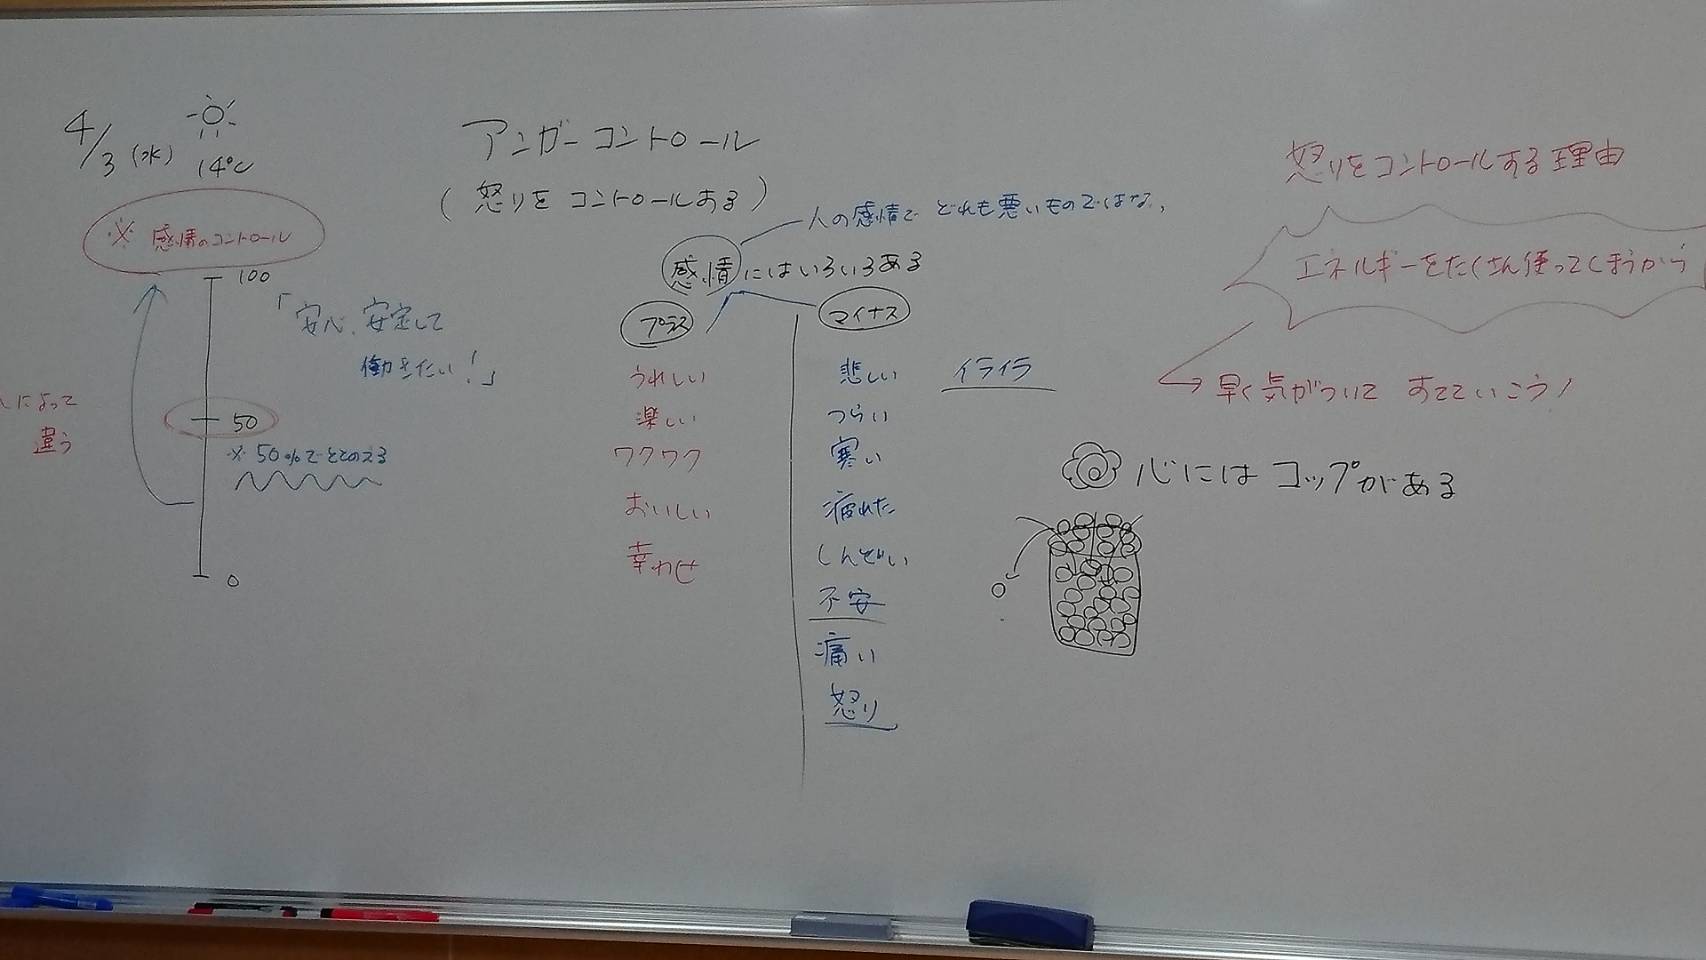 4/3(水)
14℃
※感情のコントロール
100
「安心、安定して
働きたい!」
によって
違う
50
※50%でととのえる
0
アンガーコントロール
(怒りをコントロールある)
人の感情で どれも悪いものではな
感情にはいろいろある
プラス
うれしい
楽しい
ワクワク
おいしい
幸わせ
マイナス
悲しい
つらい
寒い
疲れた
しんどい
不安
痛い
怒り
イライラ
怒りをコントロールする理由
エネルギーをたくさん使ってしまうから
早く気がついて すてていこう!
心にはコップがある